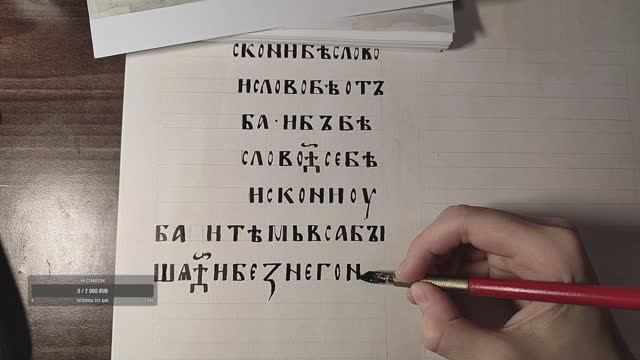 СКОНИБѢСЛОВО
ИСЛОВОБѢОТЪ
БА·ИБЪБѢ
СЛОВО СЕБѢ
ИСКОНИОУ
БА ИТѢМЬВСАБЫ
ШѦ ИБЕЗНЕГОН
НА СТАМЕСКИ
0 / 2 000 RUB